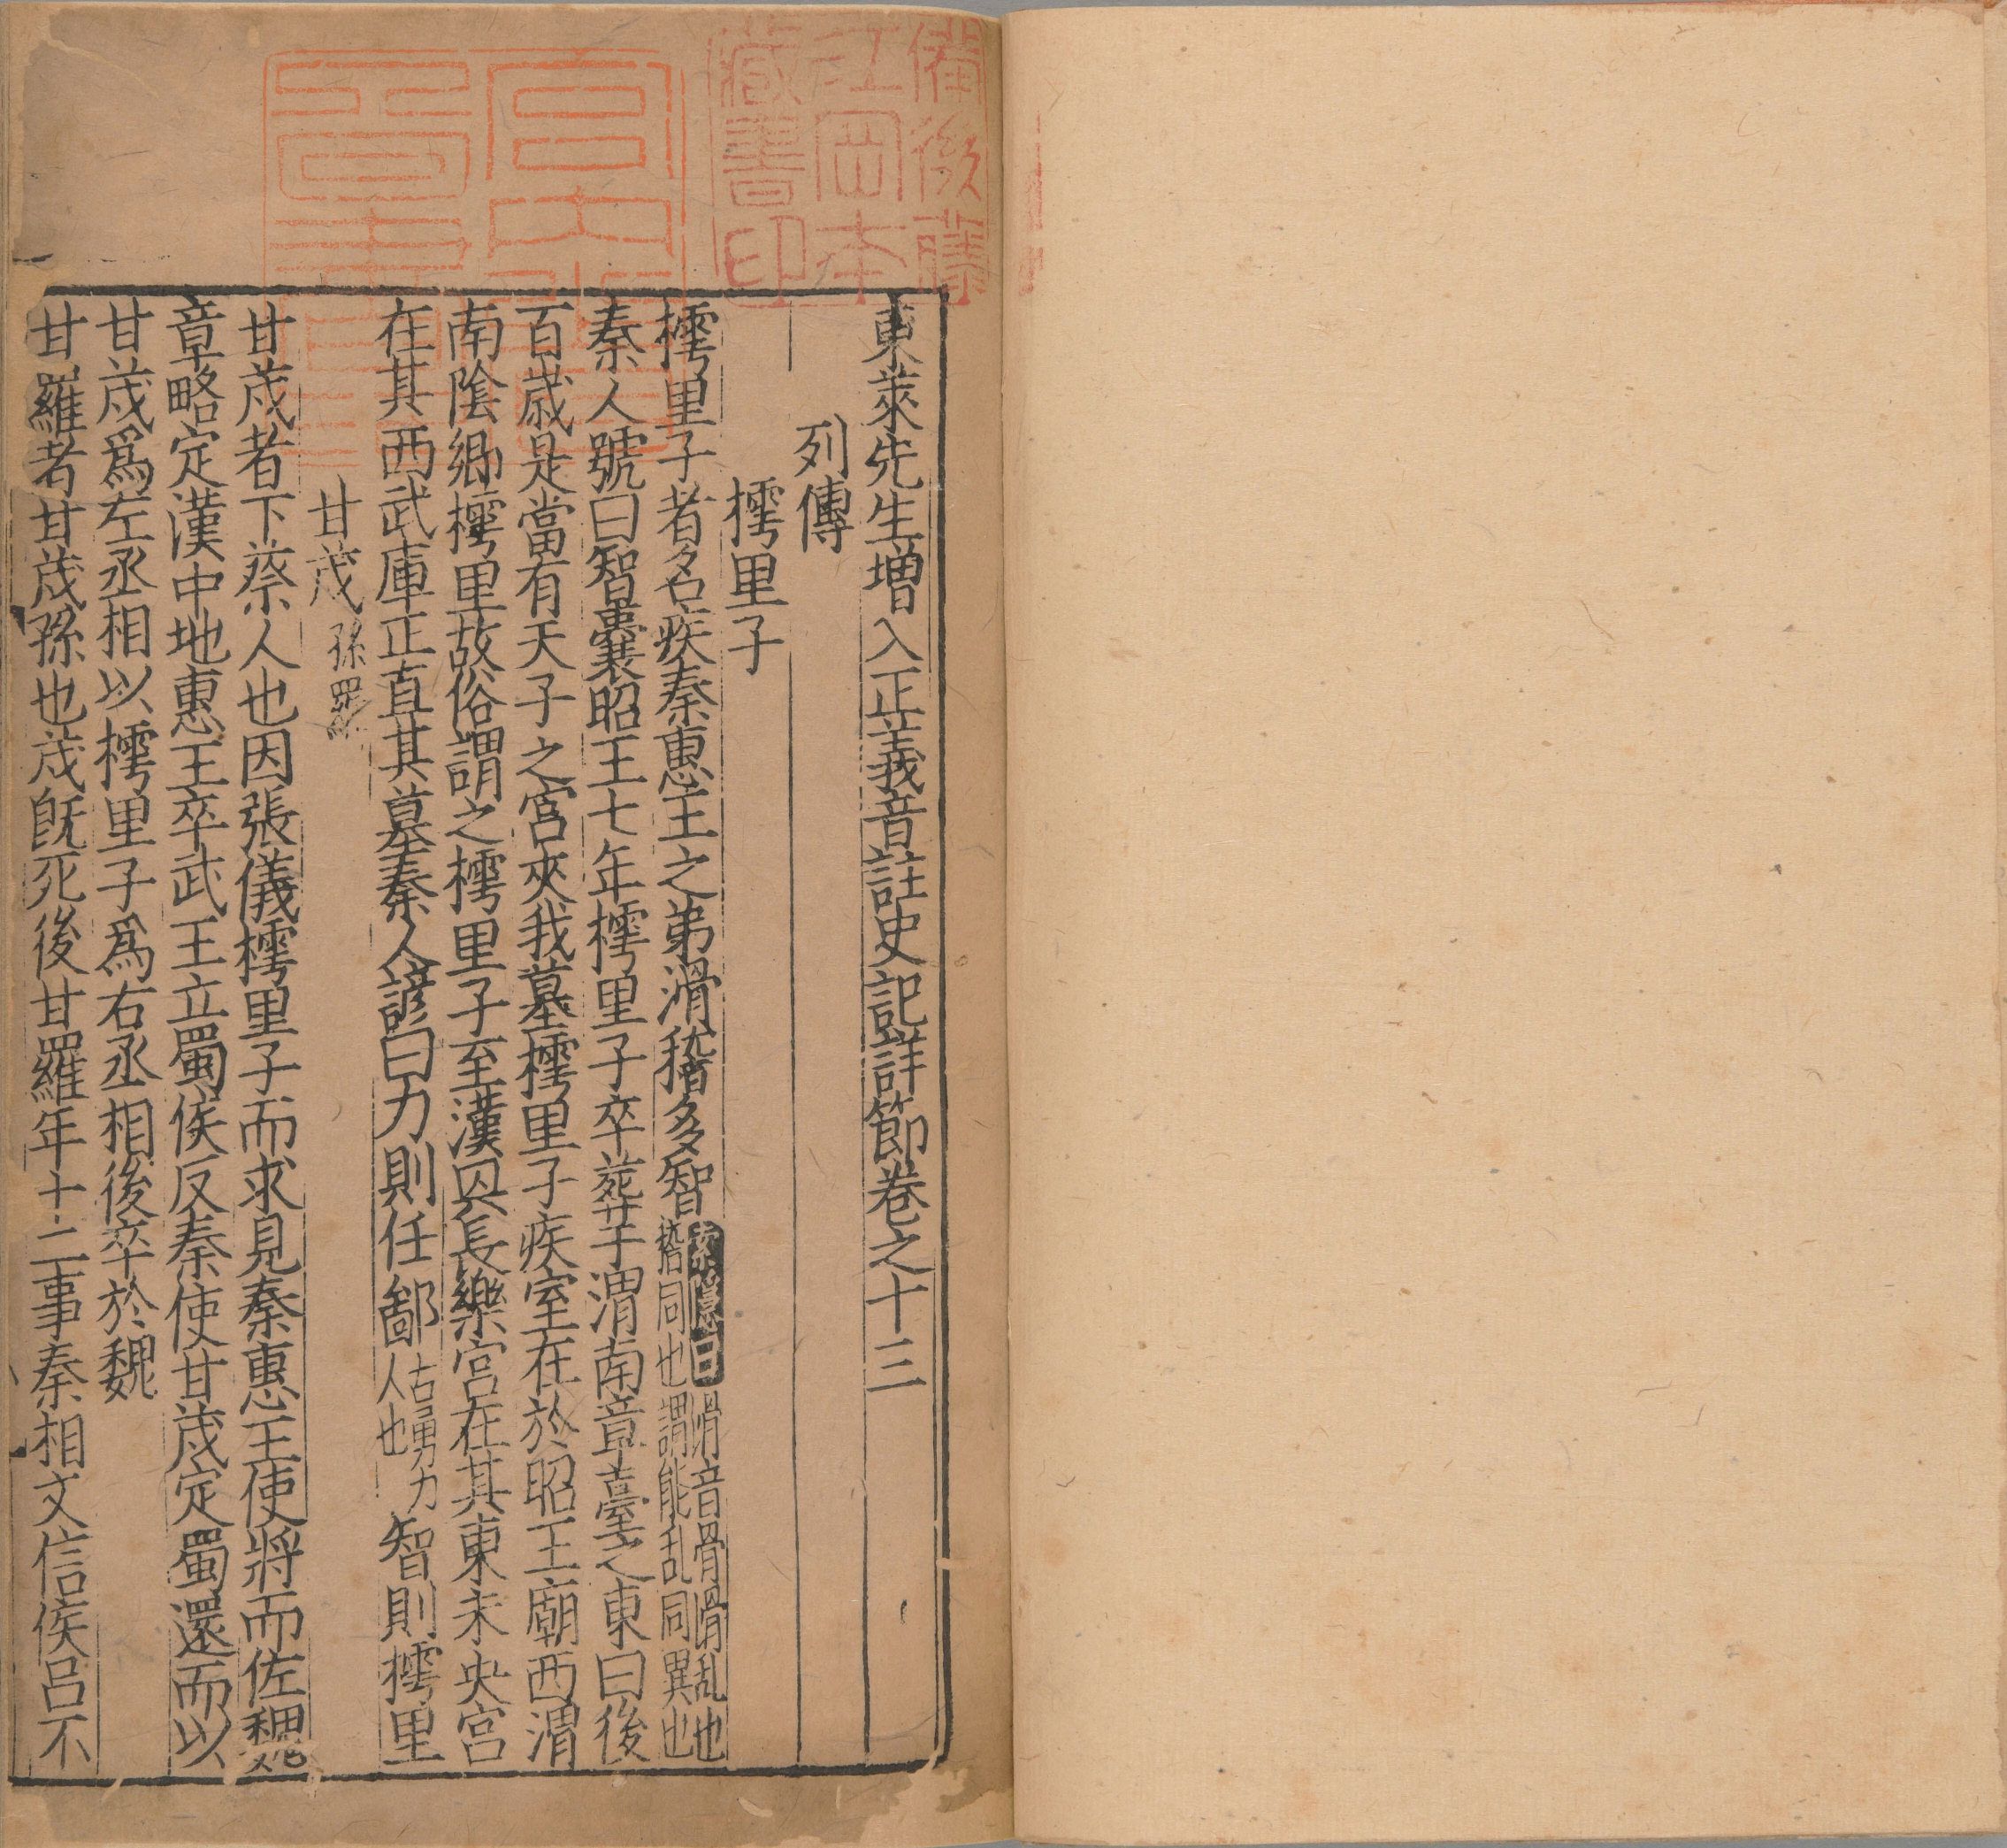 東萊先生增入正義音註史記詳節卷之十三
列傳
樗里子
樗里子者名疾秦惠王之弟滑稽多智索隱曰滑音骨滑乱也稽同也謂能乱同異也
秦人號曰智囊昭王七年樗里子卒葬于渭南章臺之東曰後
百歳是當有天子之宮夾我墓樗里子疾室在於昭王廟西渭
南陰鄉樗里故俗謂之樗里子至漢興長樂宮在其東未央宮
在其西武庫正直其墓秦人諺曰力則任鄙古勇力人也智則樗里
甘茂孫羅
甘茂者下蔡人也因張儀樗里子而求見秦惠王使將而佐魏
章略定漢中地惠王卒武王立蜀侯反秦使甘茂定蜀還而以
甘茂爲左丞相以樗里子爲右丞相後卒於魏
甘羅者甘茂孫也茂旣死後甘羅年十二事秦相文信侯呂不
備後藤
江岡本
藏書印